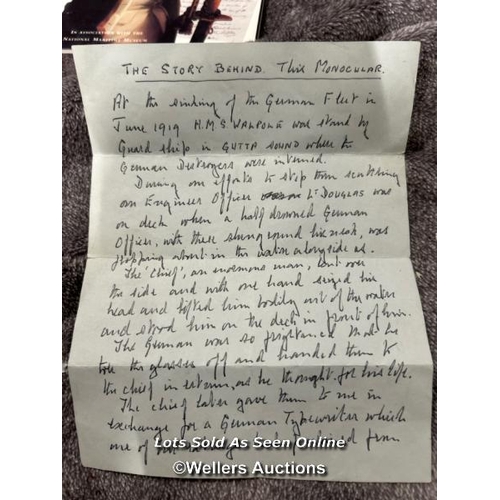 IN ASSOCIATION WITH THE
NATIONAL MARITIME MUSEUM
THE STORY BEHIND THIS MONOCULAR.
At the sinking of the German Fleet in
June 1919 H.M.S WALPOLE was stand by
Guard ship in GUTTA SOUND where the
German Destroyers were interned.
During our efforts to stop them scuttling
our Engineer Officer Lt DOUGLAS was
on deck when a half drowned German
Officer, with these slung round his neck, was
flopping about in the water alongside us.
The 'Chief', an enormous man, leant over
the side and with one hand seized his
head and lifted him bodily out of the water
and stood him on the deck in front of him.
The German was so frightened that he
tore the glasses off and handed them to
the chief in return, as he thought, for his life.
The chief later gave them to me in
exchange for a German Typewriter which
one of
Lots Sold As Seen Online
©Wellers Auctions